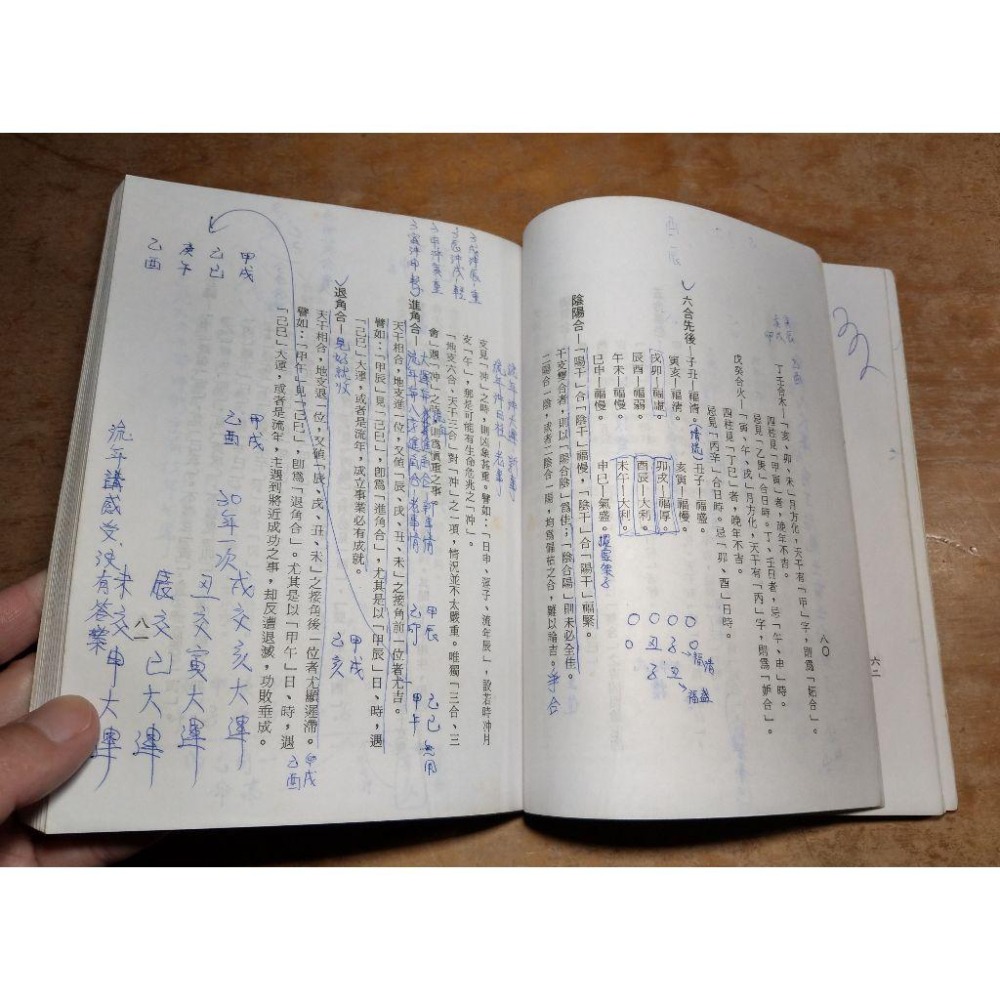 八〇
丁壬合木—「亥、卯、未」月方化，天干有「甲」字，則為「妬合」。
四柱見「甲寅」者，晚年不吉。
忌見「乙庚」合日時。丁、壬日者，忌「午、申」時。
戊癸合火—「寅、午、戌」月方化，天干有「丙」字，則為「妒合」。
四柱見「丁巳」者，晚年不吉。
忌見「丙辛」合日時。忌「卯、酉」日時。
六合先後—子丑—福清。丑子—福盛。
寅亥—福清。亥寅—福慢。
戌卯—福虛。卯戌—福厚。
辰酉—福弱。酉辰—大利。
午未—福慢。未午—大利。
巳申—福慢。申巳—氣盛。
陰陽合—「陽干」合「陰干」福慢，「陰干」合「陽干」福緊。
干支雙合者，則以「陰合陰」為佳；「陰合陽」則未必全佳。
二陽合一陰，或者二陰合一陽，均為偏枯之合，難以論吉。爭合
六二
支見「沖」之時，則凶象甚重。譬如：「日申、張子、流年辰」，設若時沖月
支「午」，那是可能有生命危兆之「沖」。
「地支六合、天干三合」對「沖」之一項，情況並不太嚴重。唯獨「三合、三
會」遇「沖」之時，則為慎重之事。
進角合—
天干相合，地支進一位，又值「辰、戌、丑、未」之接角前一位者尤吉。
譬如：「甲辰」見「己巳」，即為「進角合」，尤其是以「甲辰」日、時，遇
「己巳」大運，或者是流年，成立事業必有成就。
退角合—見好就收
天干相合，地支退一位，又值「辰、戌、丑、未」之接角後一位者尤顯遲滯。
譬如：「甲午」見「己巳」，即為「退角合」。尤其是以「甲午」日、時，遇
「己巳」大運，或者是流年，主遇到將近成功之事，却反遭退滅，功敗垂成。
八一
甲戌
乙巳
庚午
乙酉
甲戌
乙酉
30年一次
戌交亥大運
丑交寅大運
辰交巳大運
未交申大運
流年講感受、沒有答案
甲辰
乙巳 無用
甲午
甲戌
乙亥
甲戌
乙酉
福清
福盛